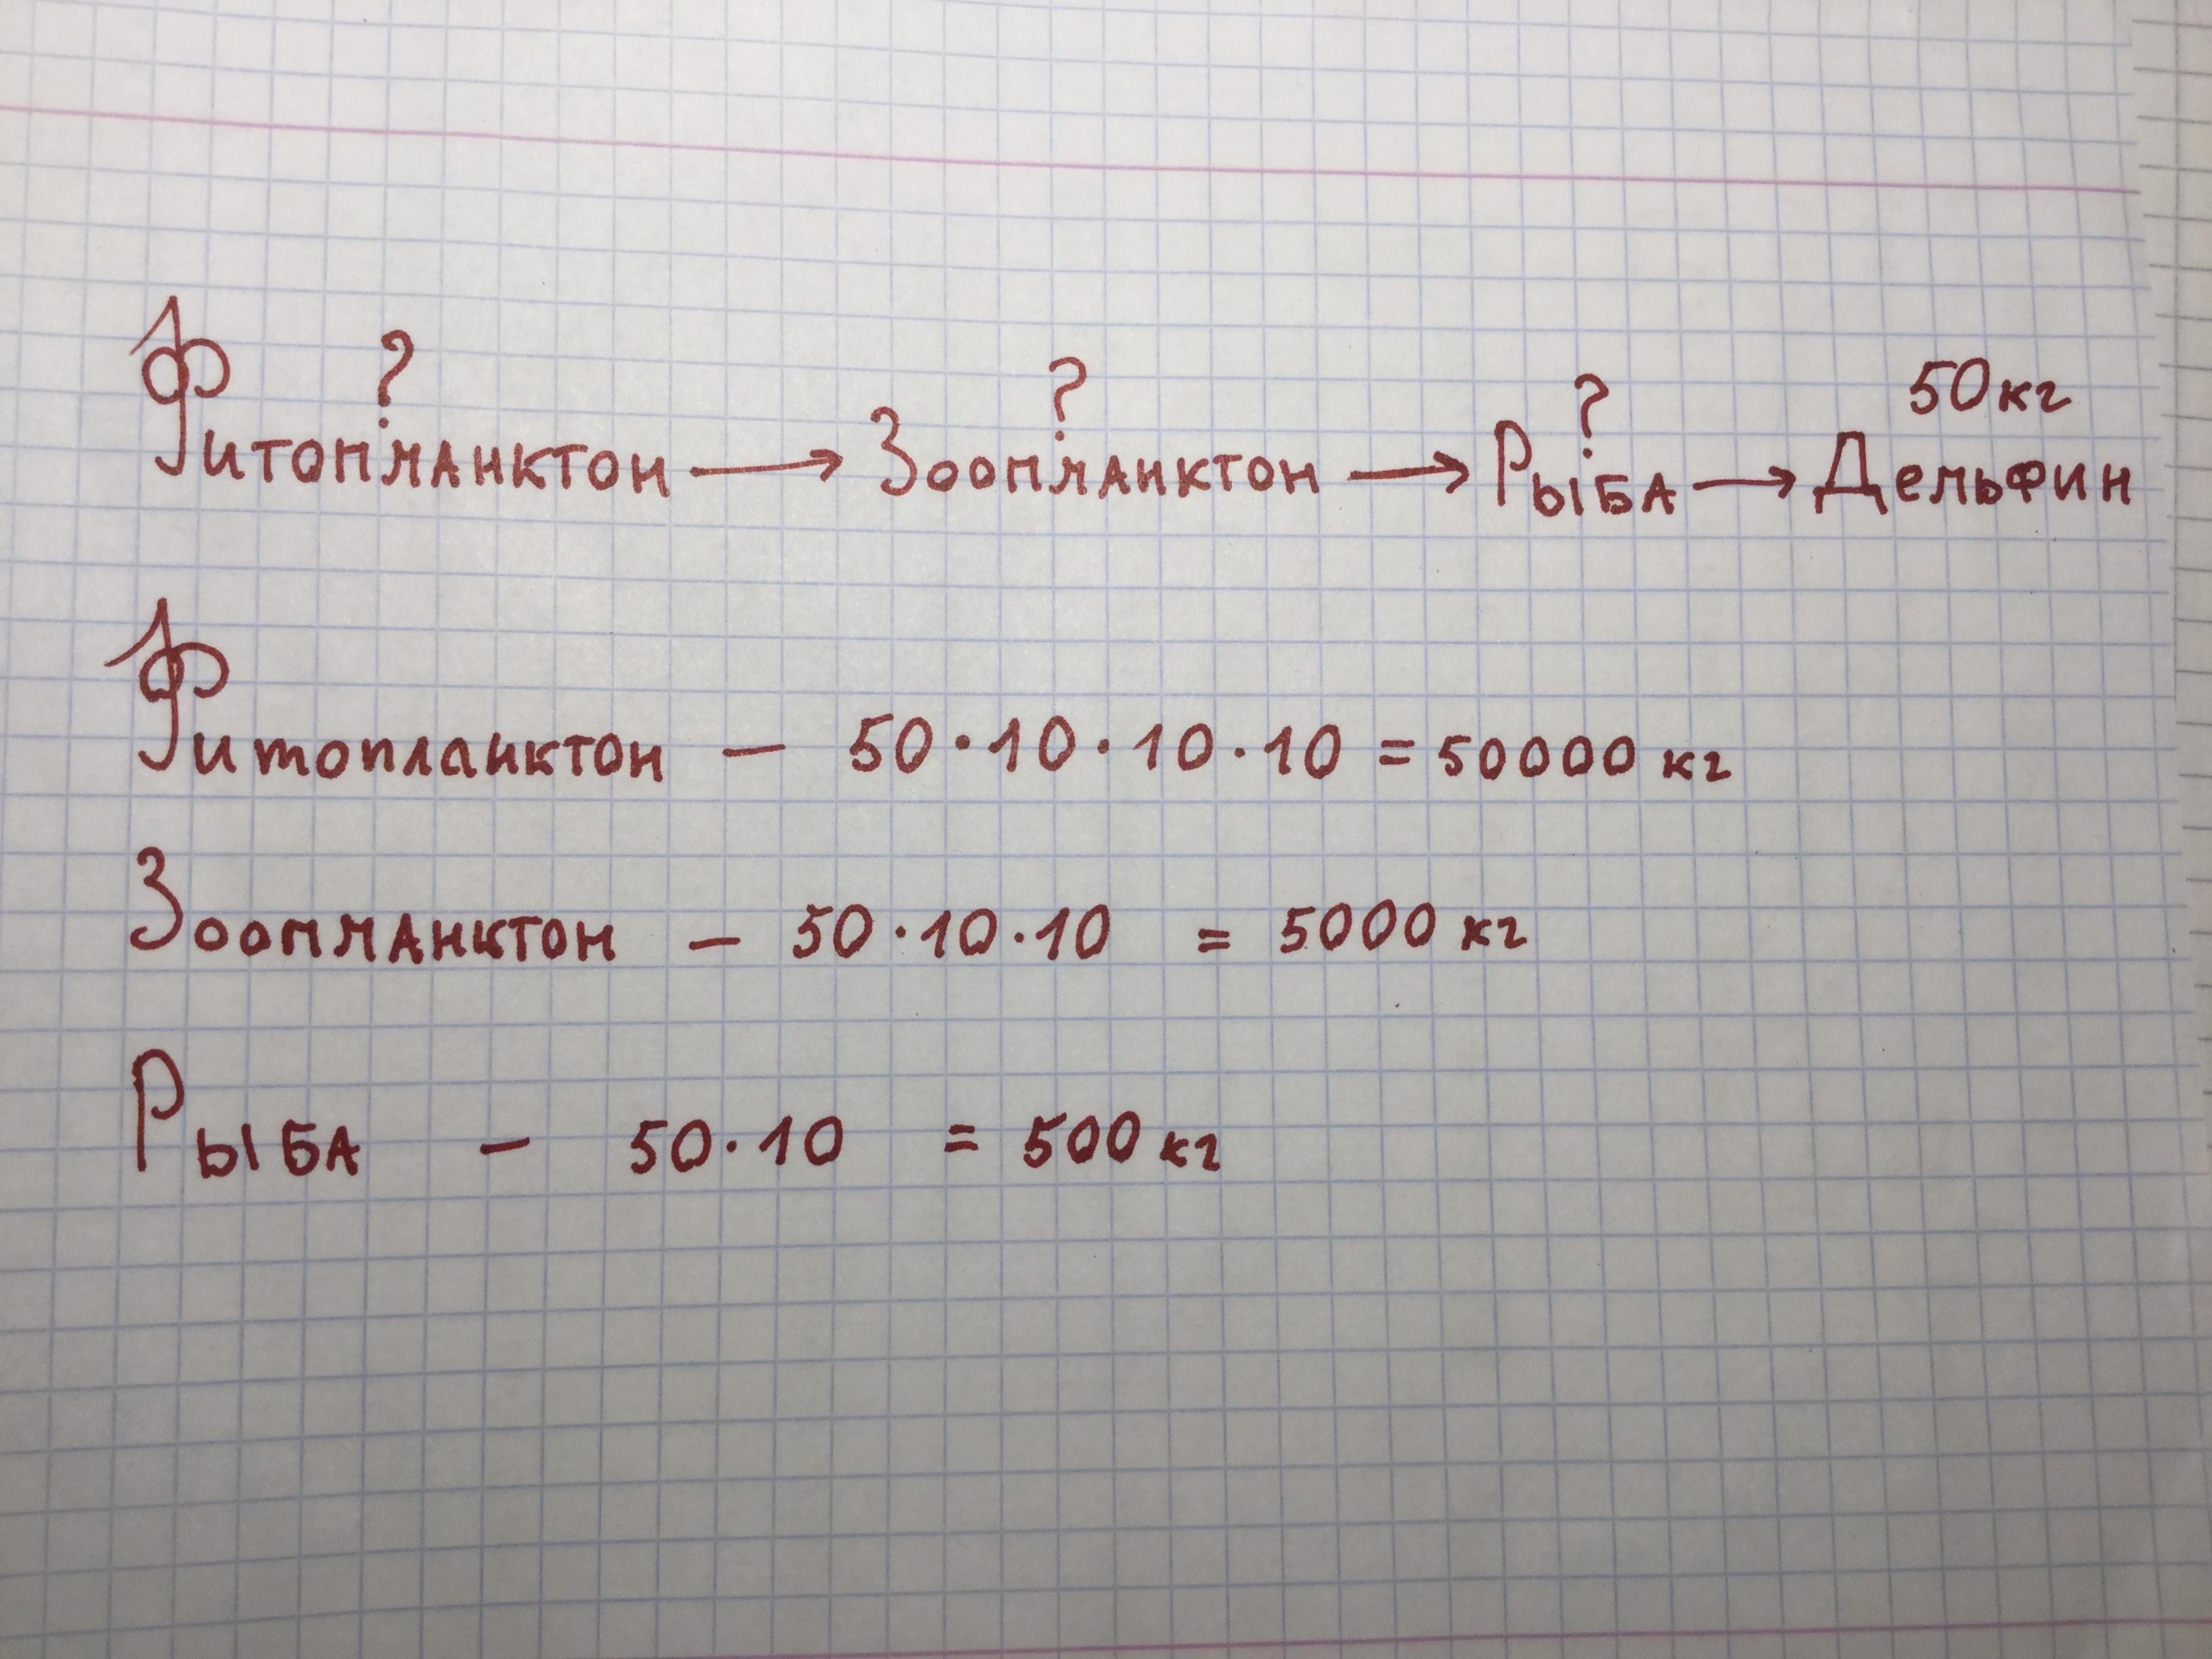 ? ? ? 50кг
Фитопланктон → Зоопланктон → Рыба → Дельфин
Фитопланктон – 50·10·10·10 = 50000 кг
Зоопланктон – 50·10·10 = 5000 кг
Рыба – 50·10 = 500 кг